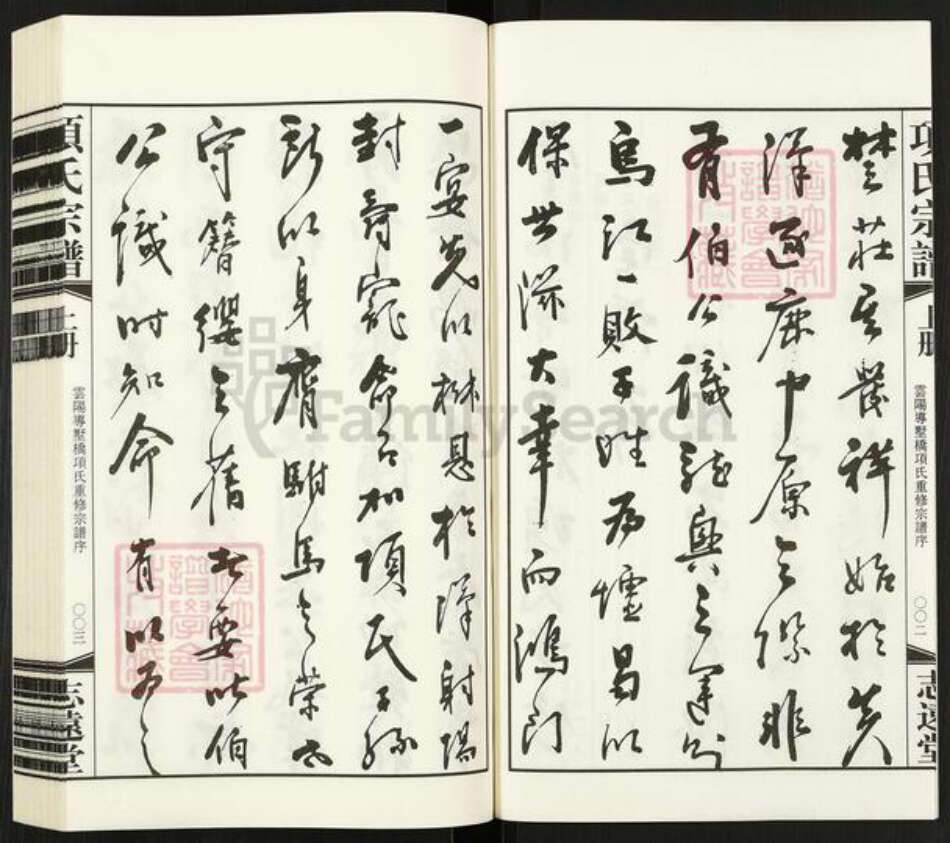 項氏宗譜 上册 雲陽導墅橋項氏重修宗譜序 〇〇二 志遠堂
楚莊其發祥始於
漢逐鹿中原之際非
有伯公識龍興之運則
烏江一敗子姓為墟曷以
保世滋大幸而鴻門
一宴先以樹恩於漢射陽
封爵寵命加項氏子孫
以身膺駙馬之榮
守簪纓之舊此要皆伯
公識時知命有以為之
項氏宗譜 上册 雲陽導墅橋項氏重修宗譜序 〇〇三 志遠堂
FamilySearch